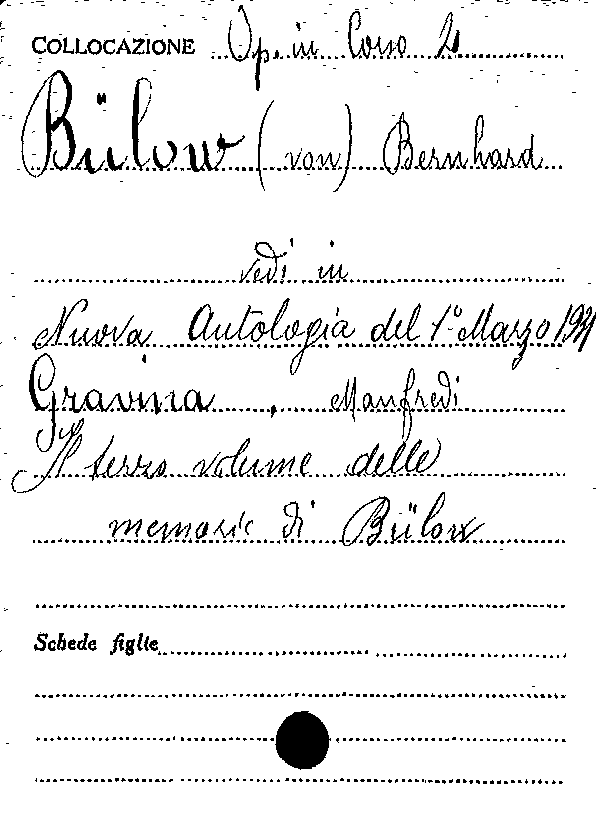 COLLOCAZIONE Op. in Corso 2
Bülow (von) Bernhard
vedi in
Nuova Antologia del 1° Marzo 1931
Gravina, Manfredi
Il terzo volume delle
memorie di Bülow
Schede figlie